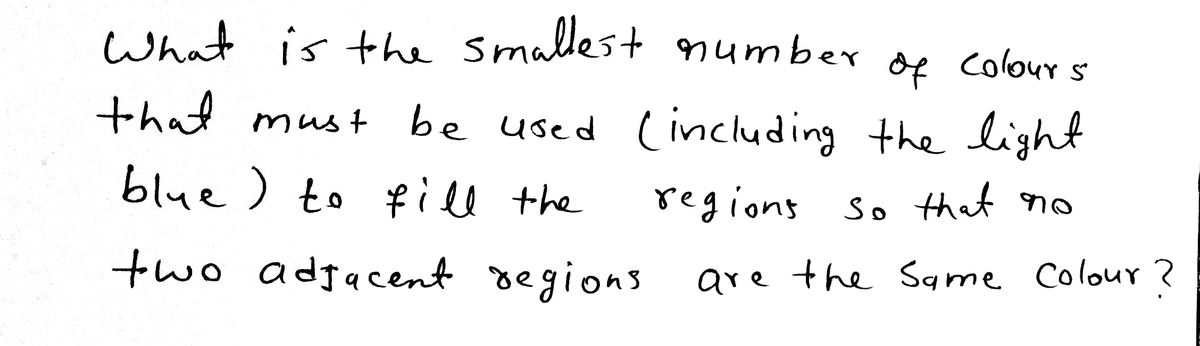 What is the smallest number of colours
that must be used (including the light
blue) to fill the regions so that no
two adjacent regions are the same colour?